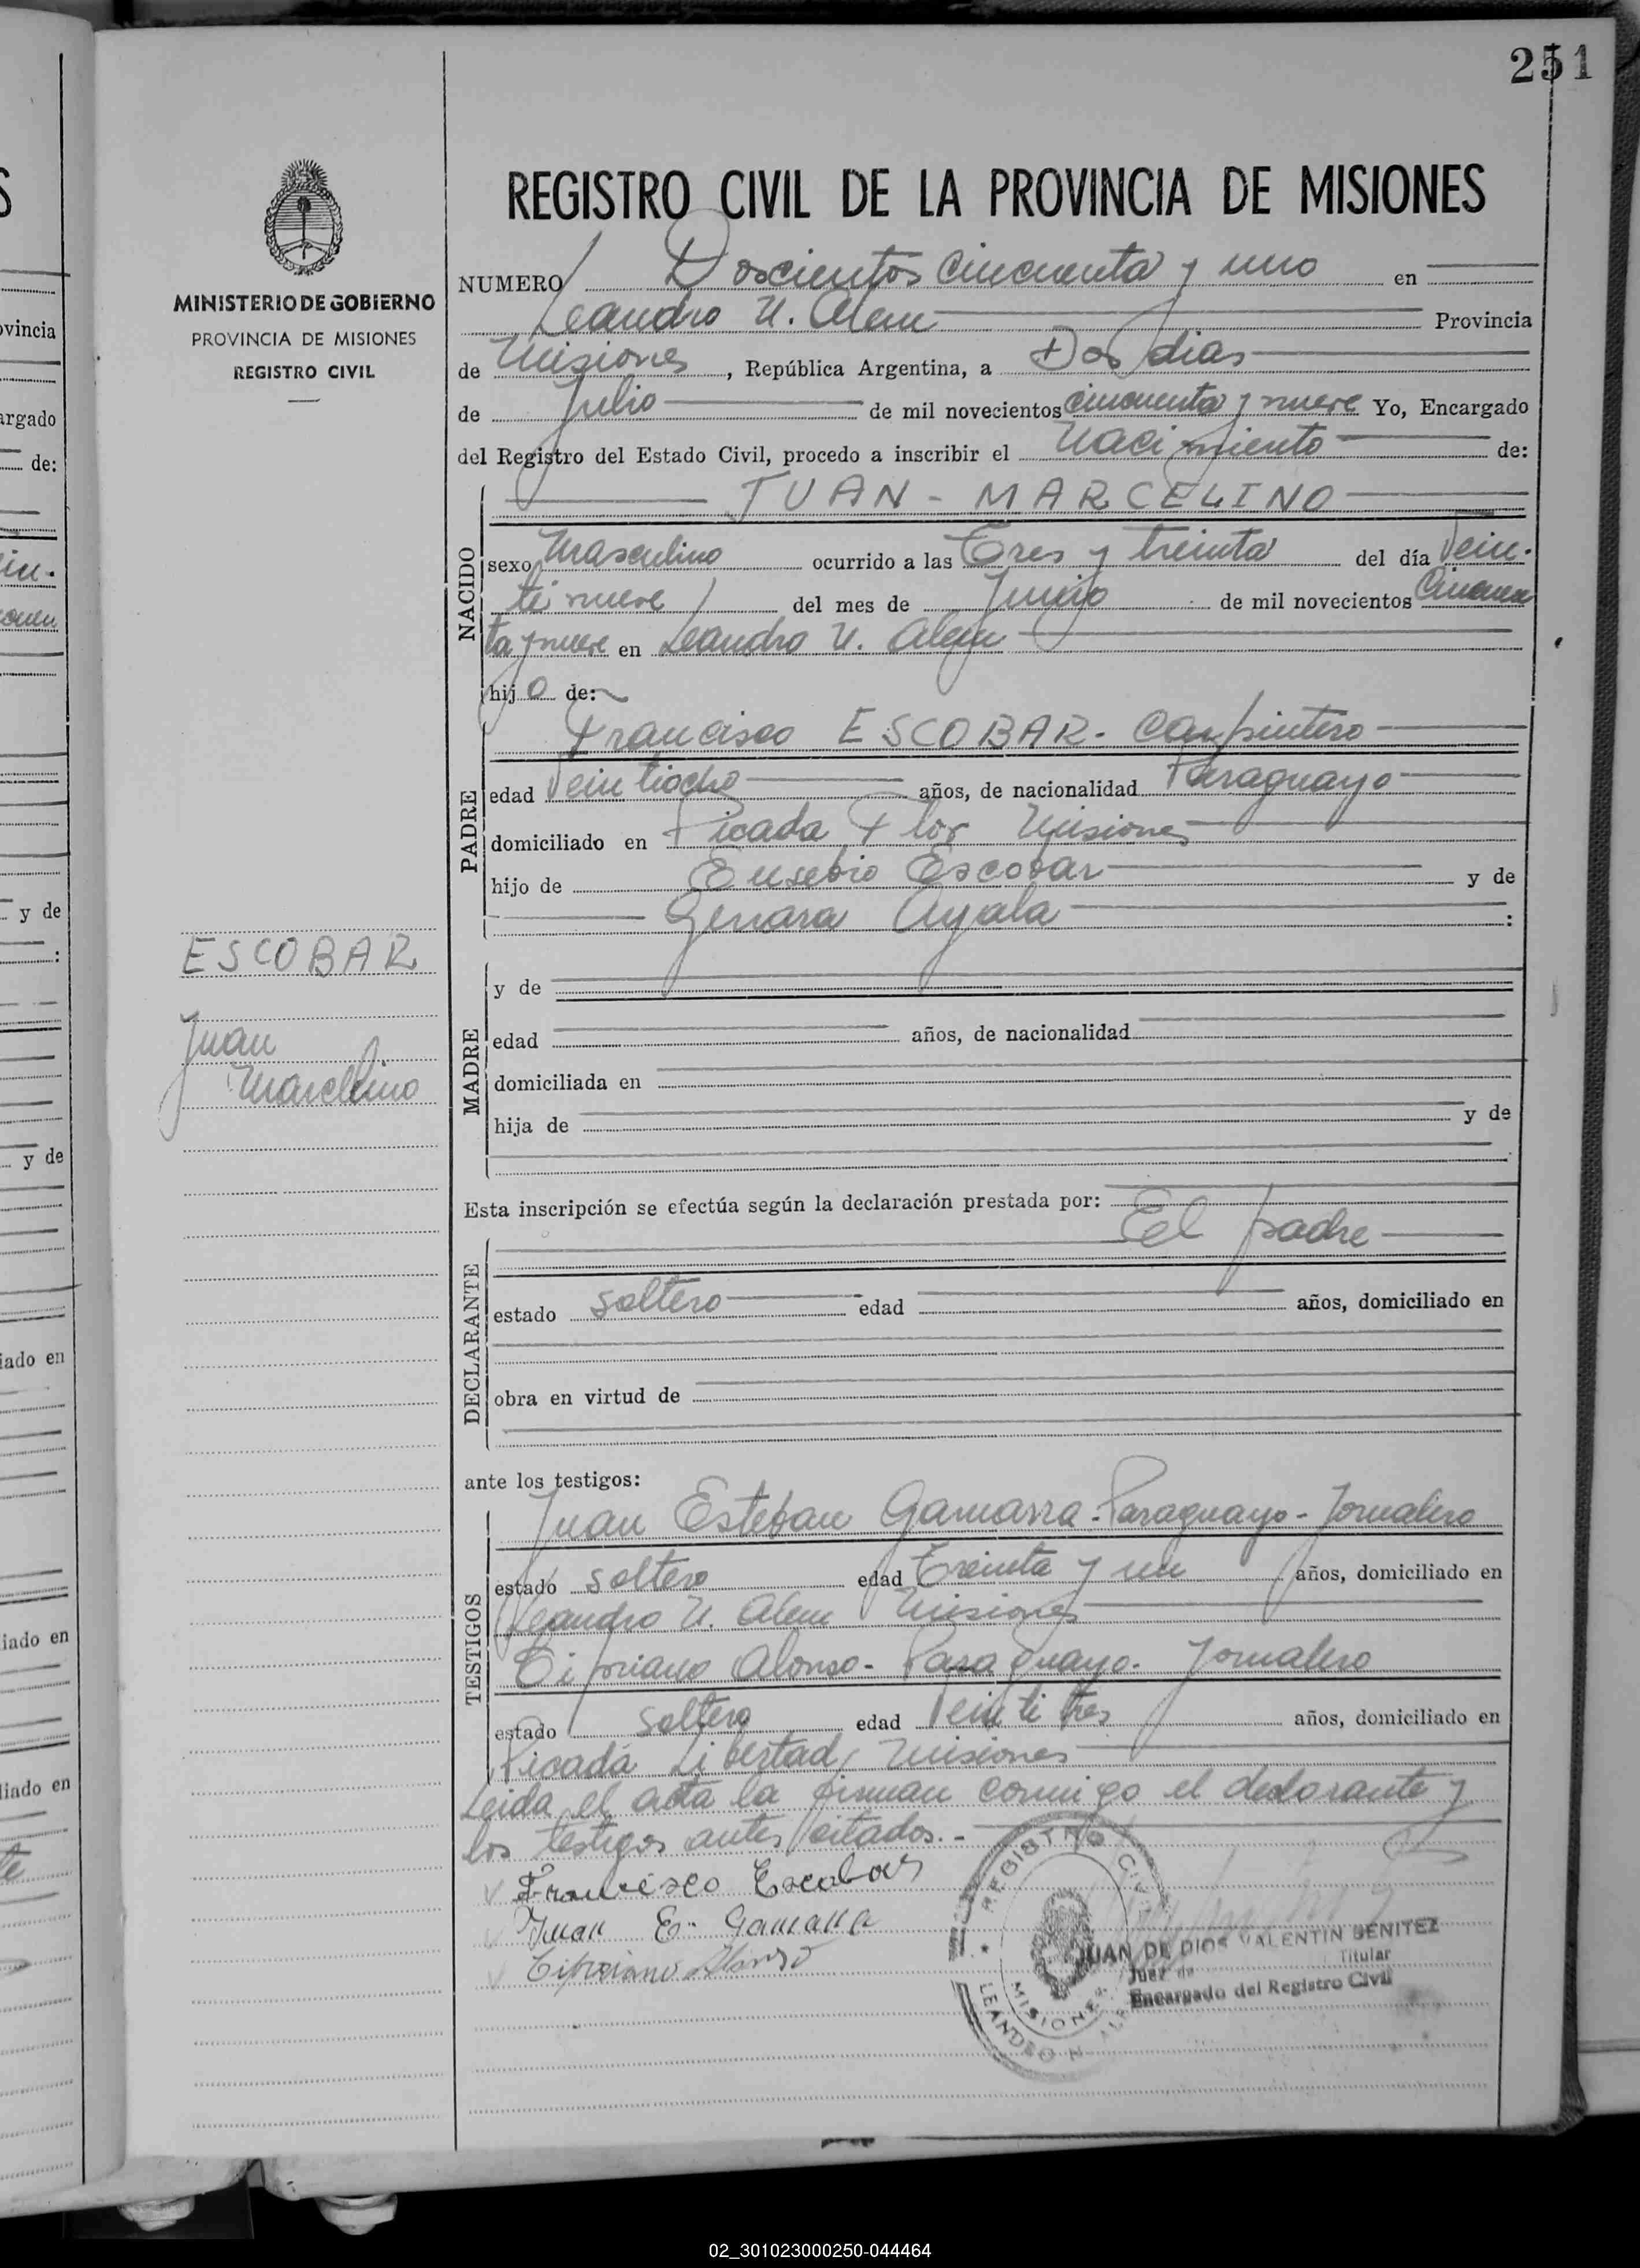 251
REGISTRO CIVIL DE LA PROVINCIA DE MISIONES
MINISTERIO DE GOBIERNO
PROVINCIA DE MISIONES
REGISTRO CIVIL
ESCOBAR
Juan
Marcelino
NUMERO Doscientos cincuenta y uno en
Leandro N. Alem Provincia
de Misiones, República Argentina, a Dos dias
de Julio de mil novecientos cincuenta y nueve Yo, Encargado
del Registro del Estado Civil, procedo a inscribir el Nacimiento de:
NACIDO
JUAN - MARCELINO
sexo Masculino ocurrido a las Tres y treinta del día Vein-
ti nueve del mes de Junio de mil novecientos Cincuen
ta y nueve en Leandro N. Alem
hijo de:
PADRE
Francisco ESCOBAR - Carpintero
edad Veintiocho años, de nacionalidad Paraguayo
domiciliado en Picada Flor Misiones
hijo de Eusebio Escobar y de
Genara Ayala :
MADRE
y de
edad años, de nacionalidad
domiciliada en
hija de y de
Esta inscripción se efectúa según la declaración prestada por:
El padre
DECLARANTE
estado soltero edad años, domiciliado en
obra en virtud de
ante los testigos:
TESTIGOS
Juan Esteban Gamarra - Paraguayo - Jornalero
estado soltero edad Treinta y un años, domiciliado en
Leandro N. Alem Misiones
Cipriano Alonso - Paraguayo - Jornalero
estado soltero edad Veinti tres años, domiciliado en
Picada Libertad, Misiones
Leida el acta la firman conmigo el declarante y
los testigos antes citados.-
Francisco Escobar
Juan E. Gamarra
Cipriano Alonso
REGISTRO CIVIL
MISIONES
LEANDRO N. ALEM
JUAN DE DIOS VALENTIN BENITEZ
Titular
Juez de
Encargado del Registro Civil
vincia
argado
de:
y de
:
y de
iado en
iado en
liado en
02_301023000250-044464